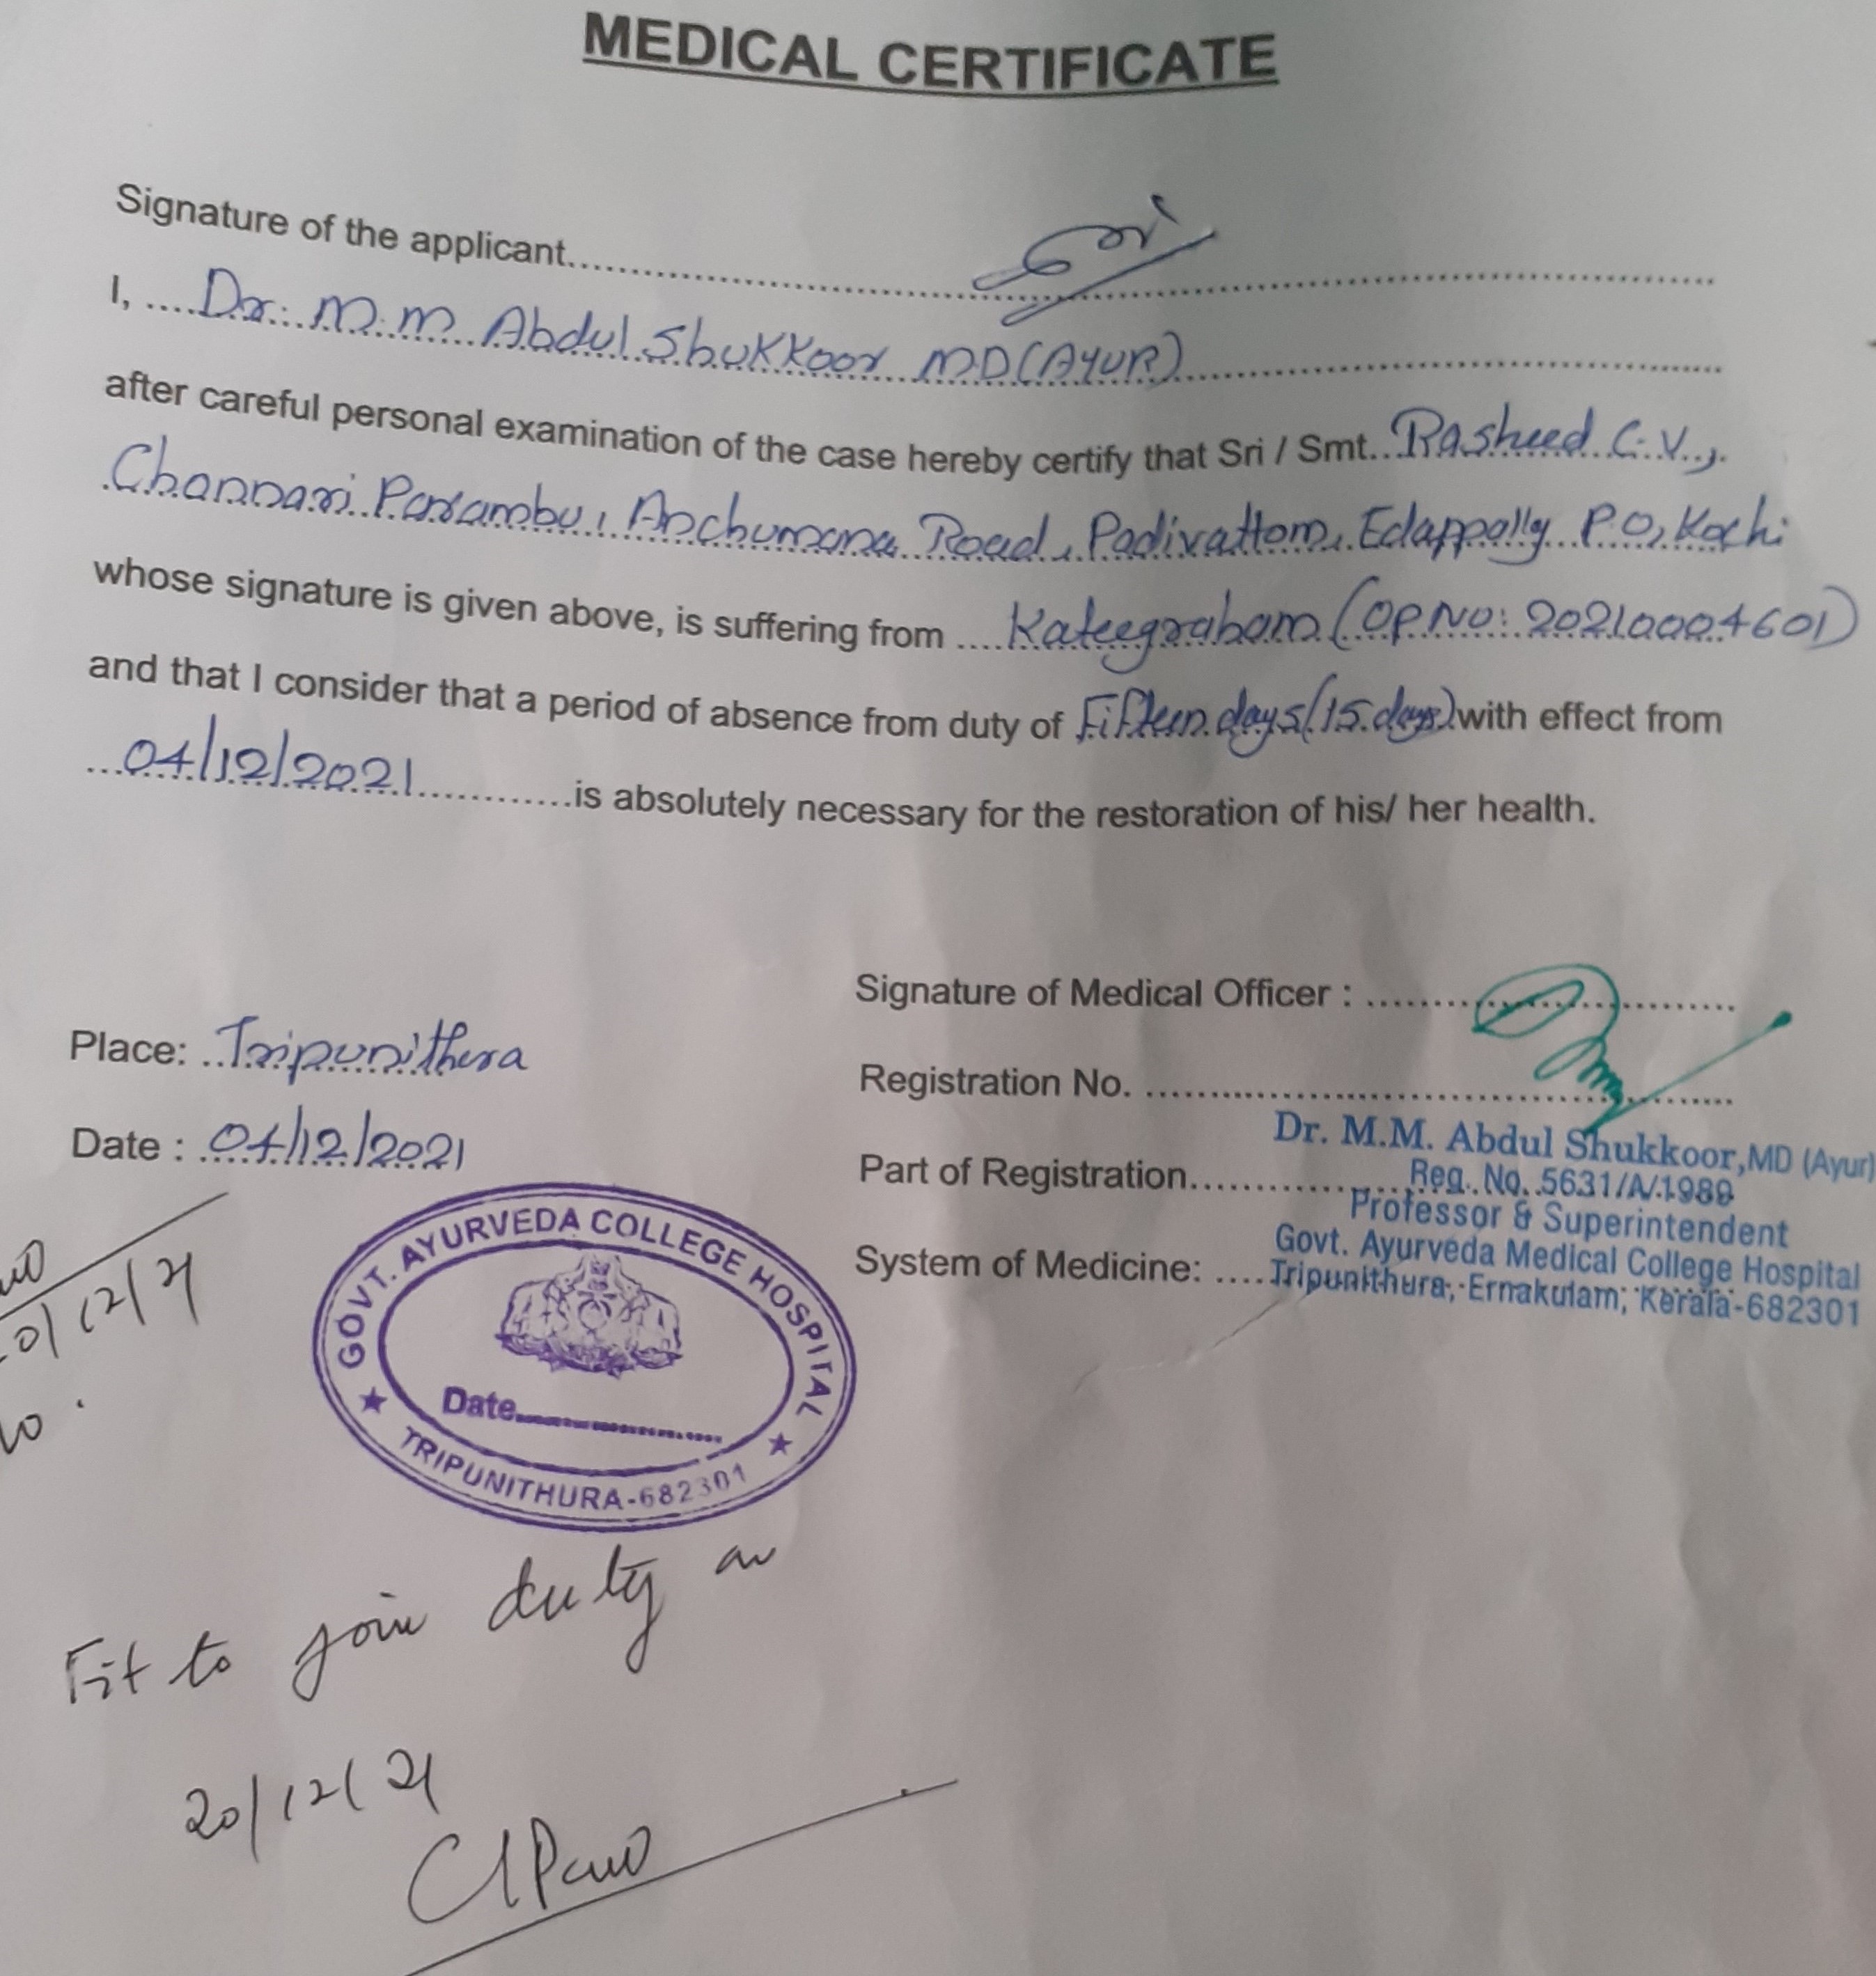 MEDICAL CERTIFICATE
Signature of the applicant
I, Dr. M.M Abdul Shukkoor MD(AYUR)
after careful personal examination of the case hereby certify that Sri / Smt. Rasheed C.V.,
Channari Parambu, Anchumana Road, Padivattom, Edappally P.O, Kochi
whose signature is given above, is suffering from Kateegraham (OP NO: 20210004601)
and that I consider that a period of absence from duty of Fifteen days(15 days) with effect from
04/12/2021 is absolutely necessary for the restoration of his/ her health.
Signature of Medical Officer :
Place: Tripunithera
Registration No.
Date : 04/12/2021
Dr. M.M. Abdul Shukkoor, MD (Ayur)
Part of Registration
Reg. No. 5631/A/1989
Professor & Superintendent
Govt. Ayurveda Medical College Hospital
System of Medicine:
Tripunithura, Ernakulam, Kerala-682301
GOVT. AYURVEDA COLLEGE HOSPITAL
Date
TRIPUNITHURA-682301
Fit to join duty on
20/12/21